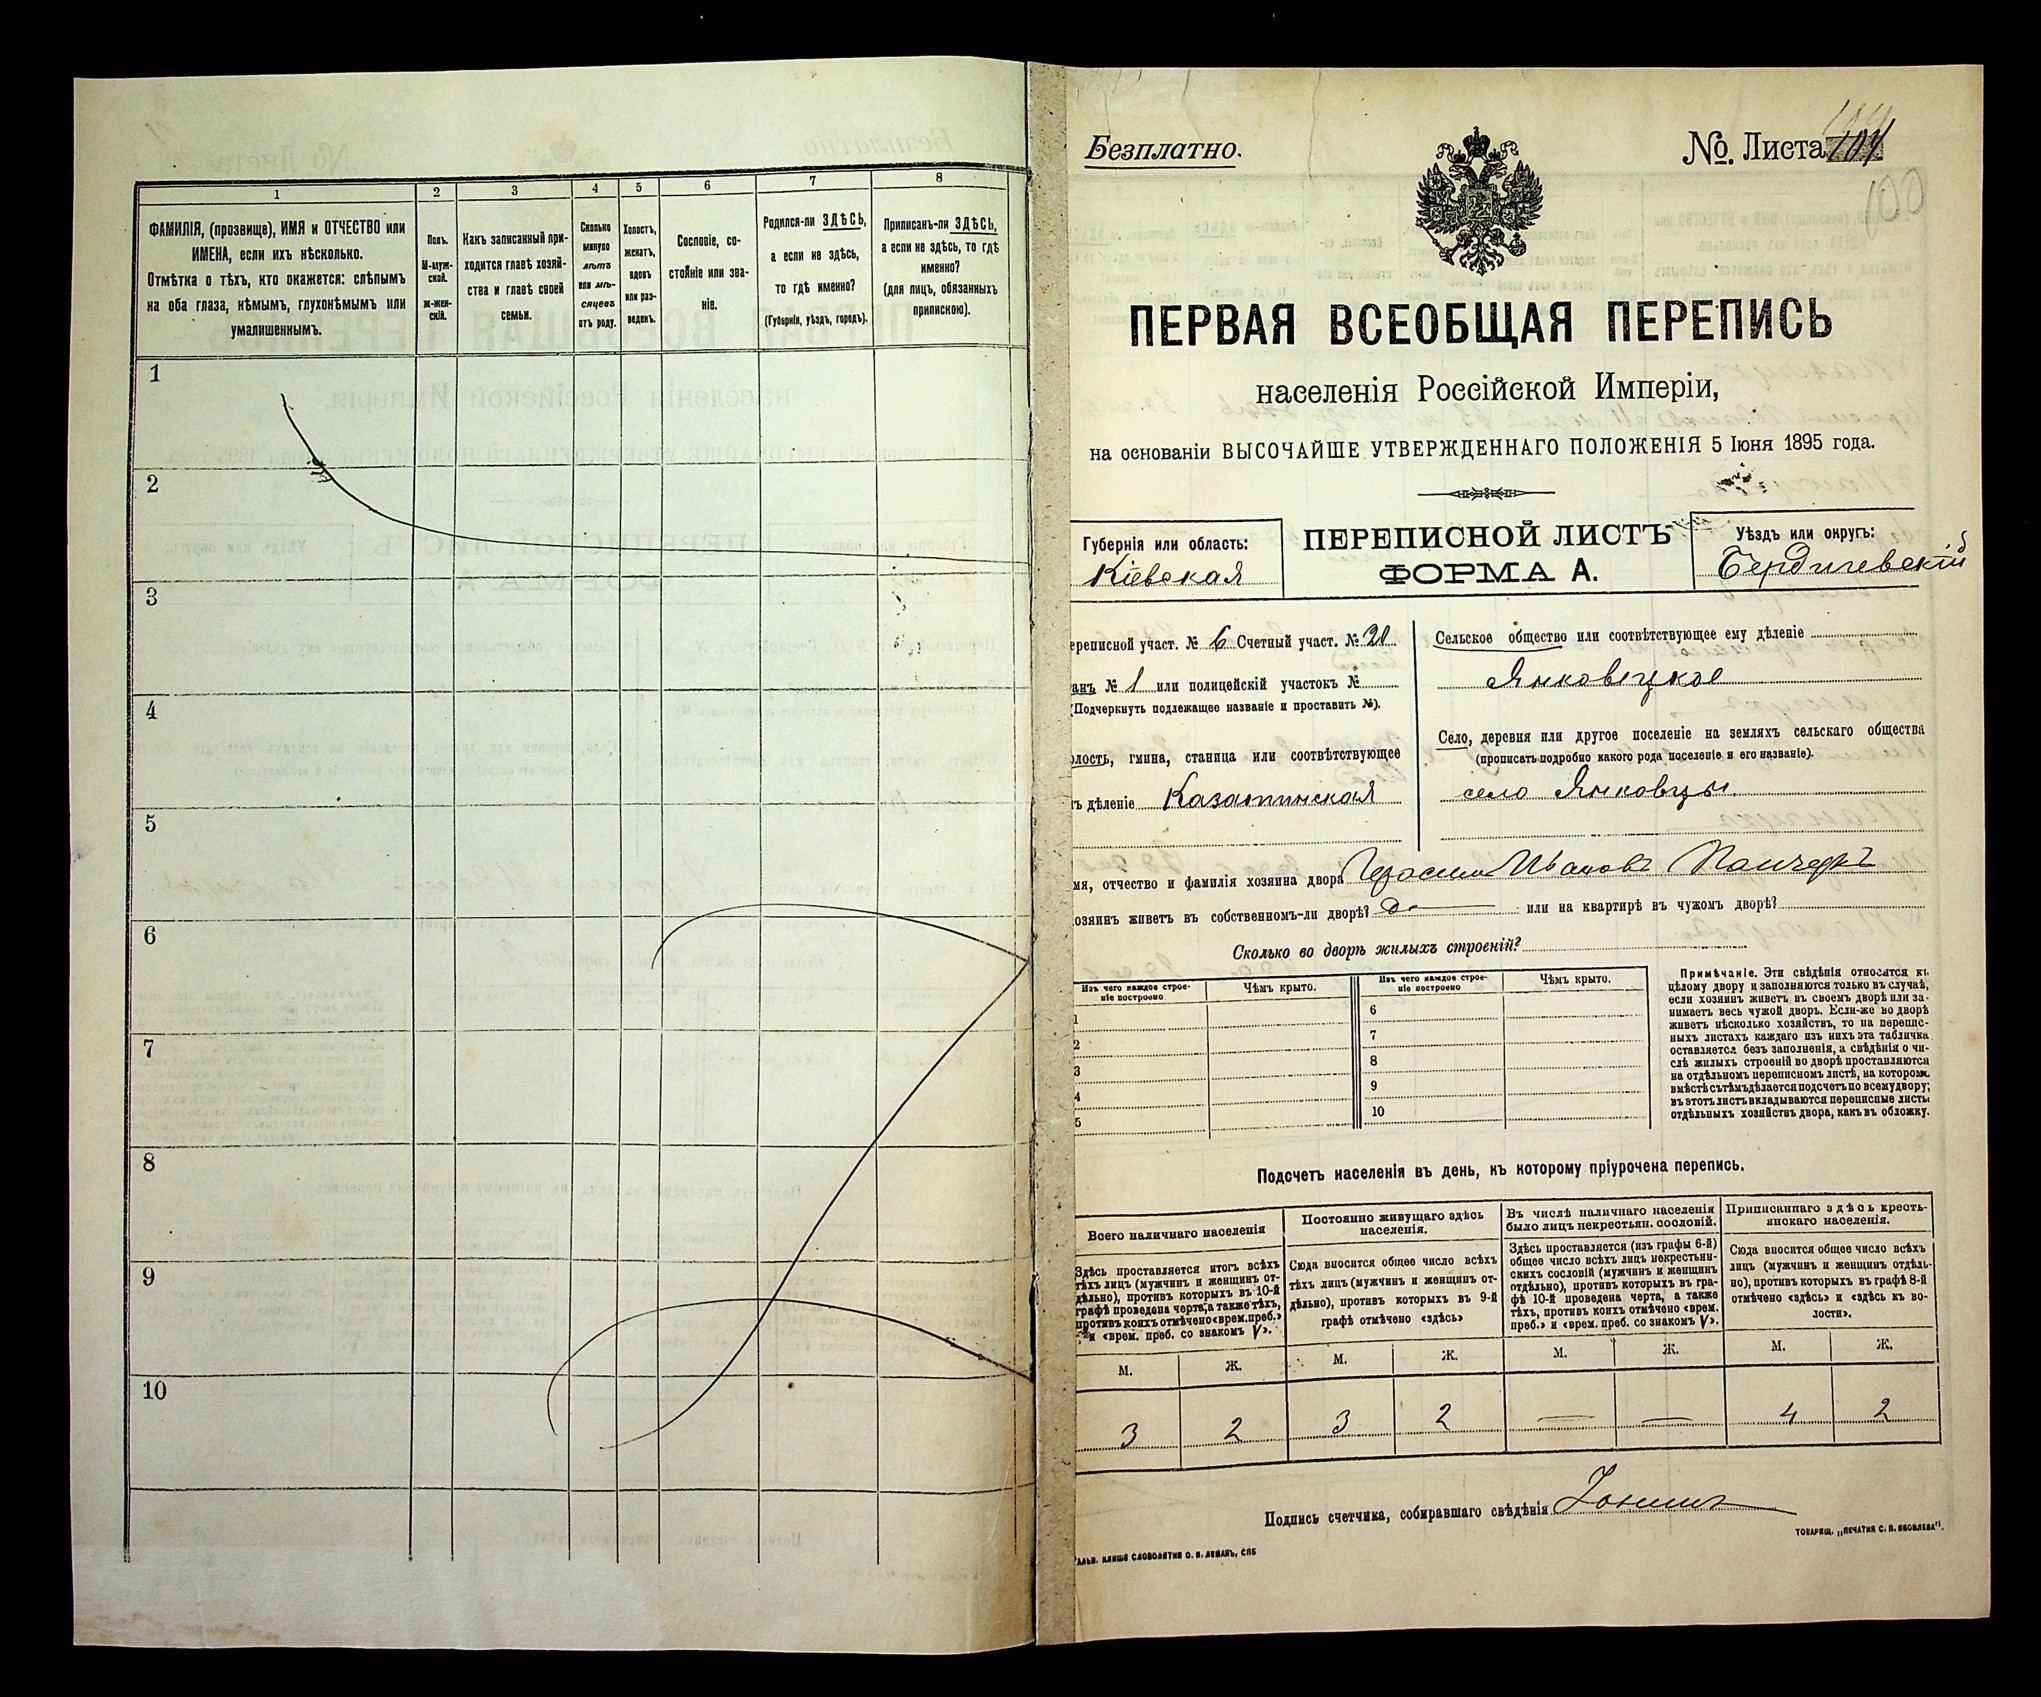 1 2 3 4 5 6 7 8
ФАМИЛІЯ, (прозвище), ИМЯ и ОТЧЕСТВО или
ИМЕНА, если ихъ нѣсколько.
Отмѣтка о тѣхъ, кто окажется: слѣпымъ
на оба глаза, нѣмымъ, глухонѣмымъ или
умалишеннымъ.
Полъ.
М-муж-
ской.
ж-жен-
скій.
Какъ записанный при-
ходится главѣ хозяй-
ства и главѣ своей
семьи.
Сколько
минуло
лѣтъ
или мѣ-
сяцевъ
отъ роду.
Холостъ,
женатъ,
вдовъ
или раз-
веденъ.
Сословіе, со-
стояніе или зва-
ніе.
Родился-ли ЗДѢСЬ,
а если не здѣсь,
то гдѣ именно?
(Губернія, уѣздъ, городъ).
Приписанъ-ли ЗДѢСЬ,
а если не здѣсь, то гдѣ
именно?
(для лицъ, обязанныхъ
припискою).
1
2
3
4
5
6
7
8
9
10
Безплатно.
№. Листа 104
100
ПЕРВАЯ ВСЕОБЩАЯ ПЕРЕПИСЬ
населенія Россійской Имперіи,
на основаніи ВЫСОЧАЙШЕ УТВЕРЖДЕННАГО ПОЛОЖЕНІЯ 5 Іюня 1895 года.
Губернія или область:
Кіевская
ПЕРЕПИСНОЙ ЛИСТЪ
ФОРМА А.
Уѣздъ или округъ:
Бердичевскій
ереписной участ. № 6 Счетный участ. №
анъ № 1 или полицейскій участокъ №
(Подчеркнуть подлежащее названіе и проставить №).
олость, гмина, станица или соотвѣтствующее
ъ дѣленіе Казатинская
Сельское общество или соотвѣтствующее ему дѣленіе
Янковецкое
Село, деревня или другое поселеніе на земляхъ сельскаго общества
(прописать подробно какого рода поселеніе и его названіе).
село Янковцы.
мя, отчество и фамилія хозяина двора Герасим Ивановъ
озяинъ живетъ въ собственномъ-ли дворѣ? да или на квартирѣ въ чужомъ дворѣ?
Сколько во дворѣ жилыхъ строеній?
Изъ чего каждое строе-
ніе построено
Чѣмъ крыто.
Изъ чего каждое строе-
ніе построено
Чѣмъ крыто.
1 6
2 7
3 8
4 9
5 10
Примѣчаніе. Эти свѣдѣнія относятся къ
цѣлому двору и заполняются только въ случаѣ,
если хозяинъ живетъ въ своемъ дворѣ или за-
нимаетъ весь чужой дворъ. Если-же во дворѣ
живетъ нѣсколько хозяйствъ, то на перепис-
ныхъ листахъ каждаго изъ нихъ эта табличка
оставляется безъ заполненія, а свѣдѣнія о чи-
слѣ жилыхъ строеній во дворѣ проставляются
на отдѣльномъ переписномъ листѣ, на которомъ
вмѣстѣ съ тѣмъ дѣлается подсчетъ по всему двору;
въ этотъ листъ вкладываются переписные листы
отдѣльныхъ хозяйствъ двора, какъ въ обложку.
Подсчетъ населенія въ день, къ которому пріурочена перепись.
Всего наличнаго населенія
Здѣсь проставляется итогъ всѣхъ
тѣхъ лицъ (мужчинъ и женщинъ от-
дѣльно), противъ которыхъ въ 10-й
графѣ проведена черта, а также тѣхъ,
противъ коихъ отмѣчено «врем. преб.»
и «врем. преб. со знакомъ V».
Постоянно живущаго здѣсь
населенія.
Сюда вносится общее число всѣхъ
тѣхъ лицъ (мужчинъ и женщинъ от-
дѣльно), противъ которыхъ въ 9-й
графѣ отмѣчено «здѣсь»
Въ числѣ наличнаго населенія
было лицъ некрестьян. сословій.
Здѣсь проставляется (изъ графы 6-й)
общее число всѣхъ лицъ некрестьян-
скихъ сословій (мужчинъ и женщинъ
отдѣльно), противъ которыхъ въ гра-
фѣ 10-й проведена черта, а также
тѣхъ, противъ коихъ отмѣчено «врем.
преб.» и «врем. преб. со знакомъ V».
Приписаннаго здѣсь кресть-
янскаго населенія.
Сюда вносится общее число всѣхъ
лицъ (мужчинъ и женщинъ отдѣль-
но), противъ которыхъ въ графѣ 8-й
отмѣчено «здѣсь» и «здѣсь къ во-
лости».
М. Ж. М. Ж. М. Ж. М. Ж.
3 2 3 2 — — 4 2
Подпись счетчика, собиравшаго свѣдѣнія
ТОВАРИЩ. „ПЕЧАТНЯ С. П. ЯКОВЛЕВА“.
КЛИШЕ СЛОВОЛИТНИ О. И. ЛЕМАНЪ, СПБ